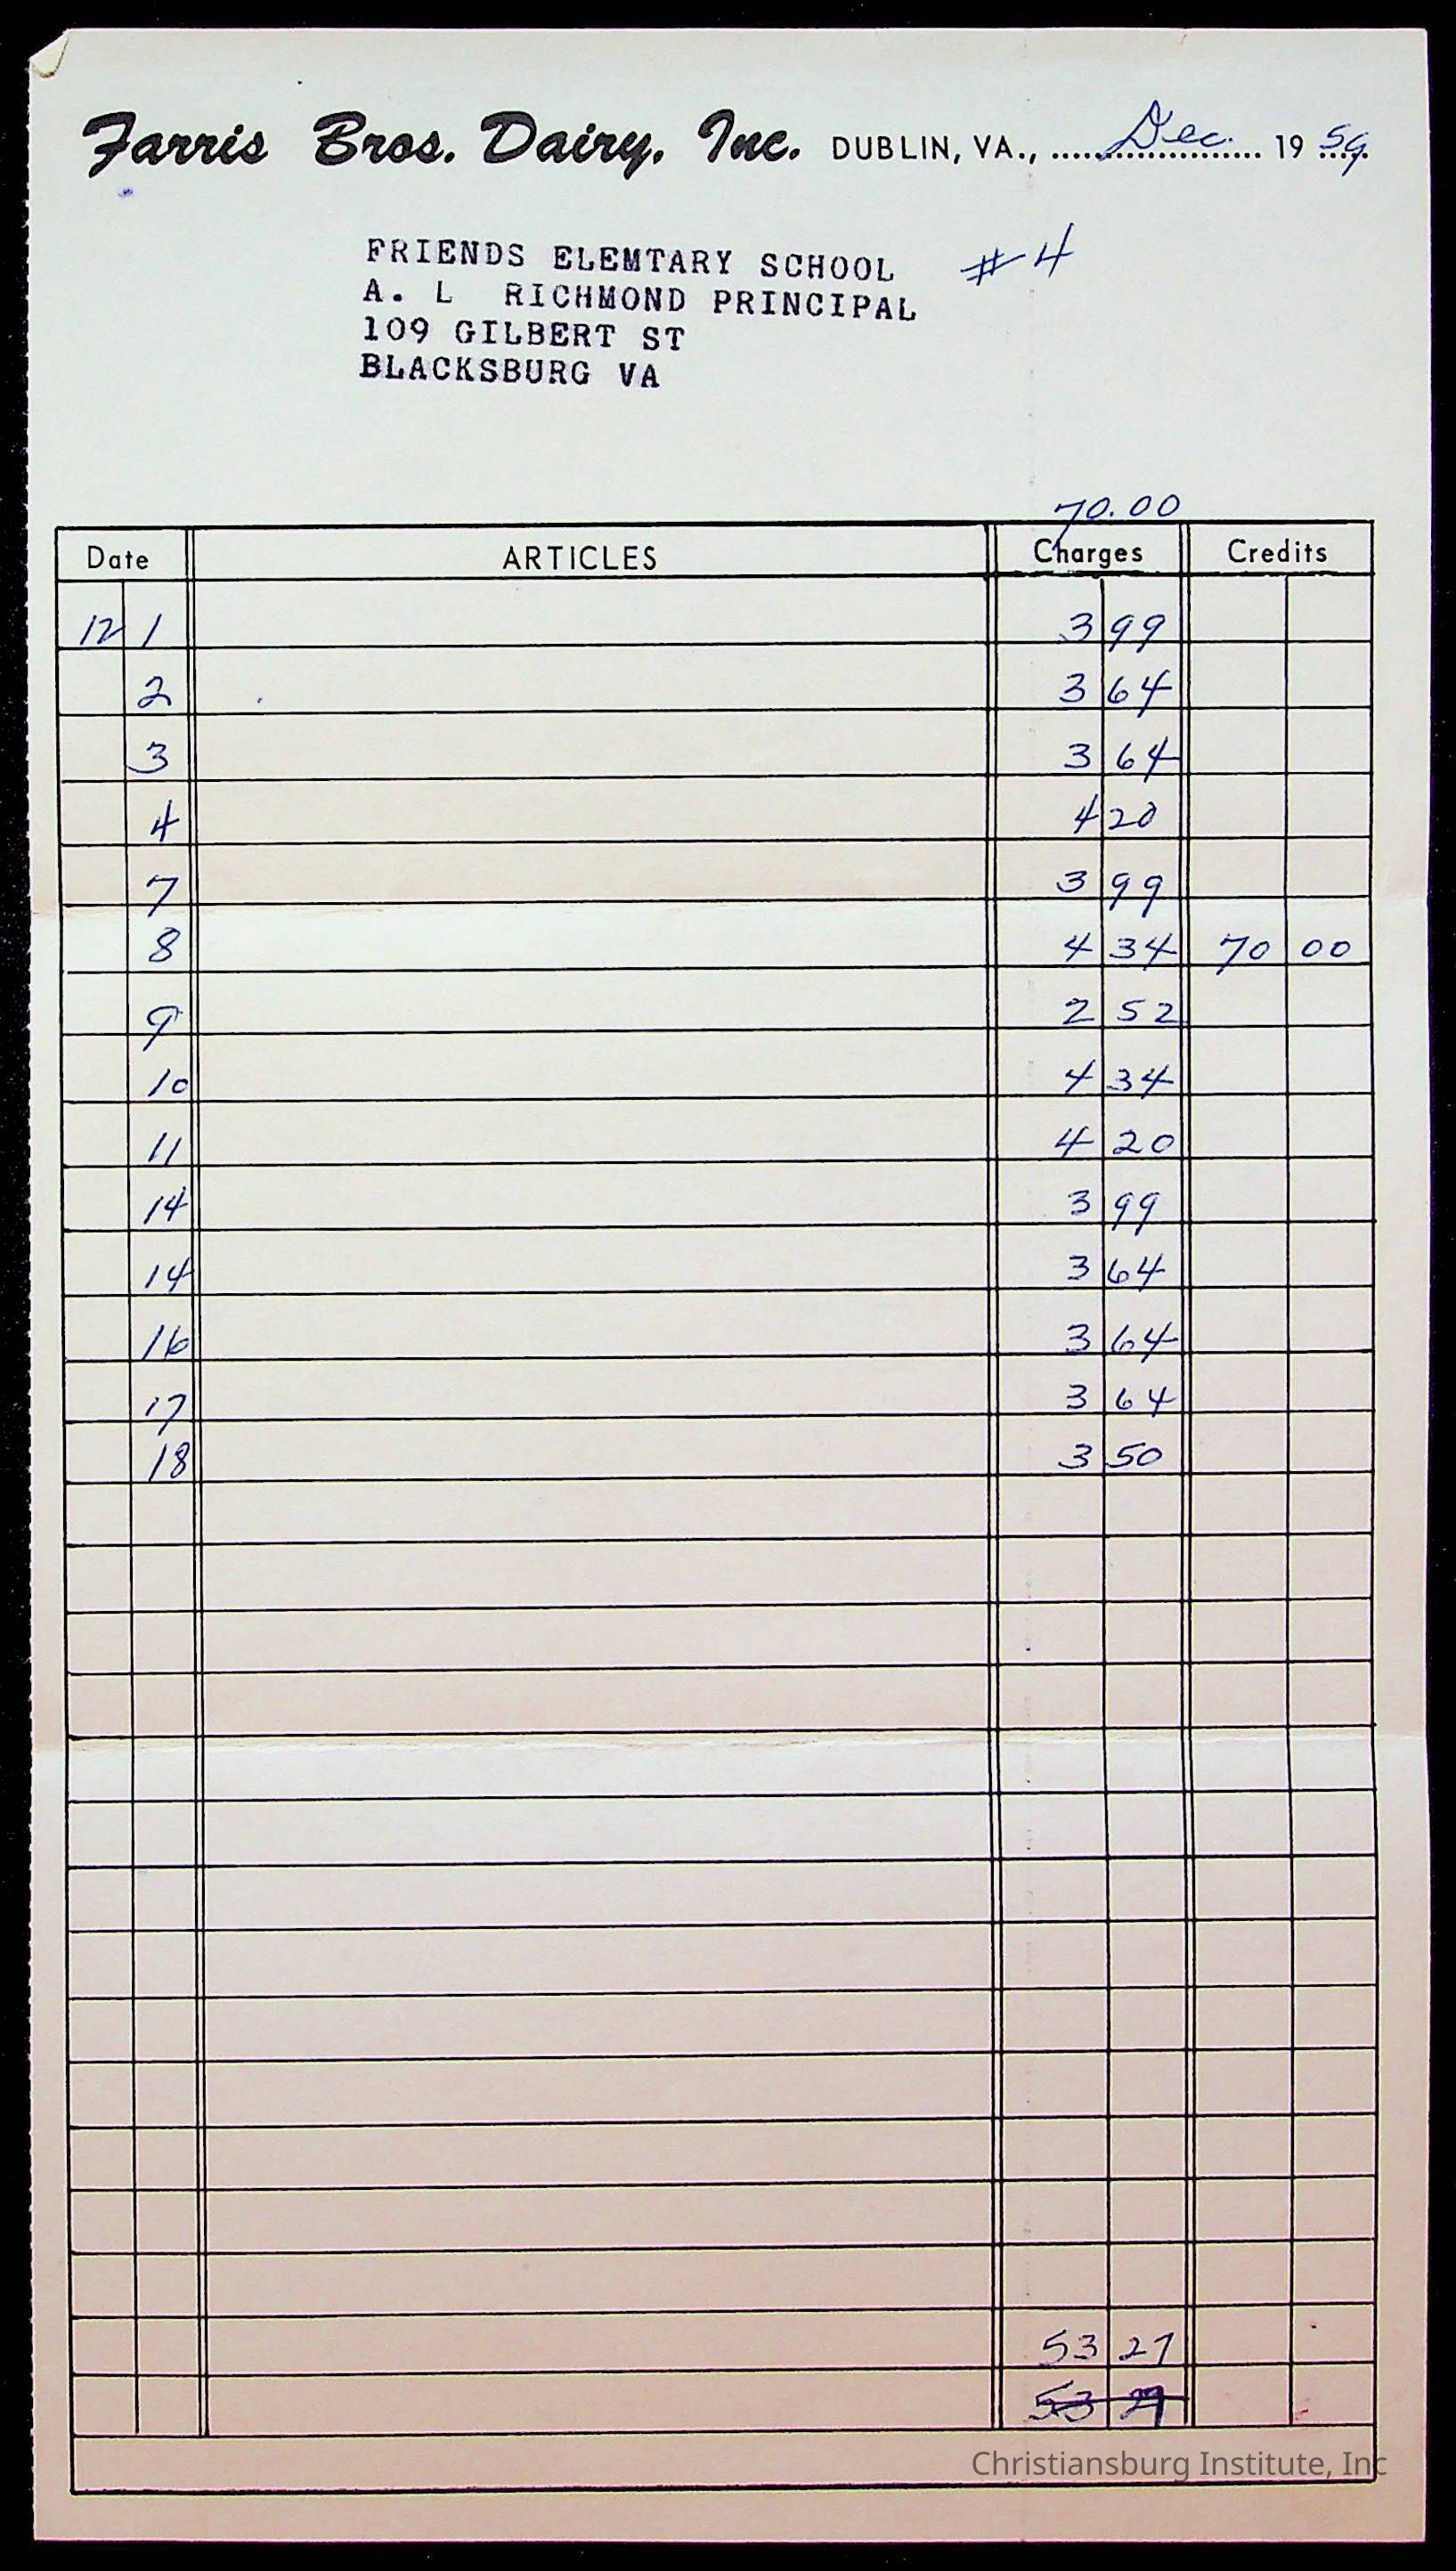 Farris Bros. Dairy, Inc. DUBLIN, VA., Dec. 19 59
FRIENDS ELEMTARY SCHOOL #4
A. L RICHMOND PRINCIPAL
109 GILBERT ST
BLACKSBURG VA
70.00
Date ARTICLES Charges Credits
12 1 3 99
2 3 64
3 3 64
4 4 20
7 3 99
8 4 34 70 00
9 2 52
10 4 34
11 4 20
14 3 99
14 3 64
16 3 64
17 3 64
18 3 50
53 27
53
Christiansburg Institute, Inc